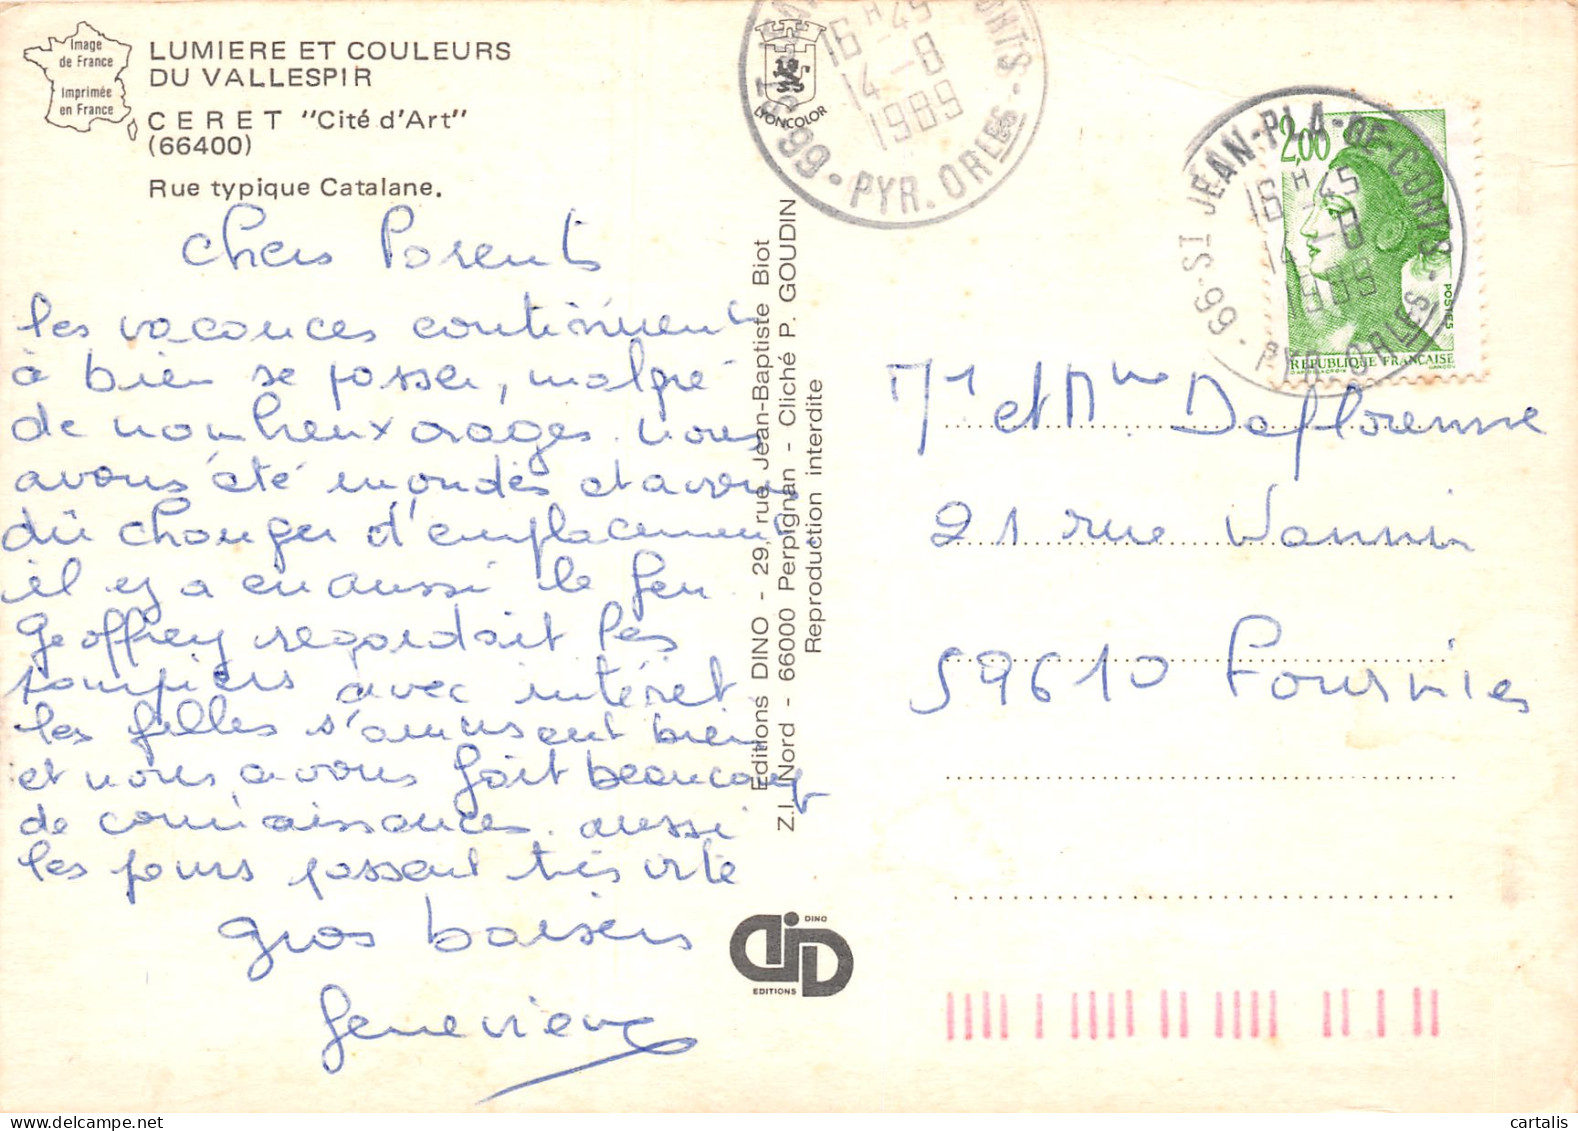 Image
de France
Imprimée
en France
LUMIERE ET COULEURS
DU VALLESPIR
CERET "Cité d'Art"
(66400)
Rue typique Catalane.
Chers Parents
les vacances continuent
à bien se passer, malgré
de nombreux orages. nous
avons été inondés et avons
dû changer d'emplacement.
il y a eu aussi le feu
Geoffrey regardait les
pompiers avec intérêt
les filles s'amusent bien
et nous avons fait beaucoup
de connaissances. aussi
les jours passent très vite
gros baisers
Geneviève
LYONCOLOR
16 H 45
14-8
1989
66 · PYR. ORLES
Editions DINO - 29, rue Jean-Baptiste Biot
Z.I. Nord - 66000 Perpignan - Cliché P. GOUDIN
Reproduction interdite
DINO
EDITIONS
66-ST JEAN-PLA-DE-CORTS
16 H 45
14-8
1989
PYR. ORLES
2,00
POSTES
REPUBLIQUE FRANCAISE
GANDON
Mr et Mme Daflorenne
21 rue Vannin
59610 Fourmies
cartalis